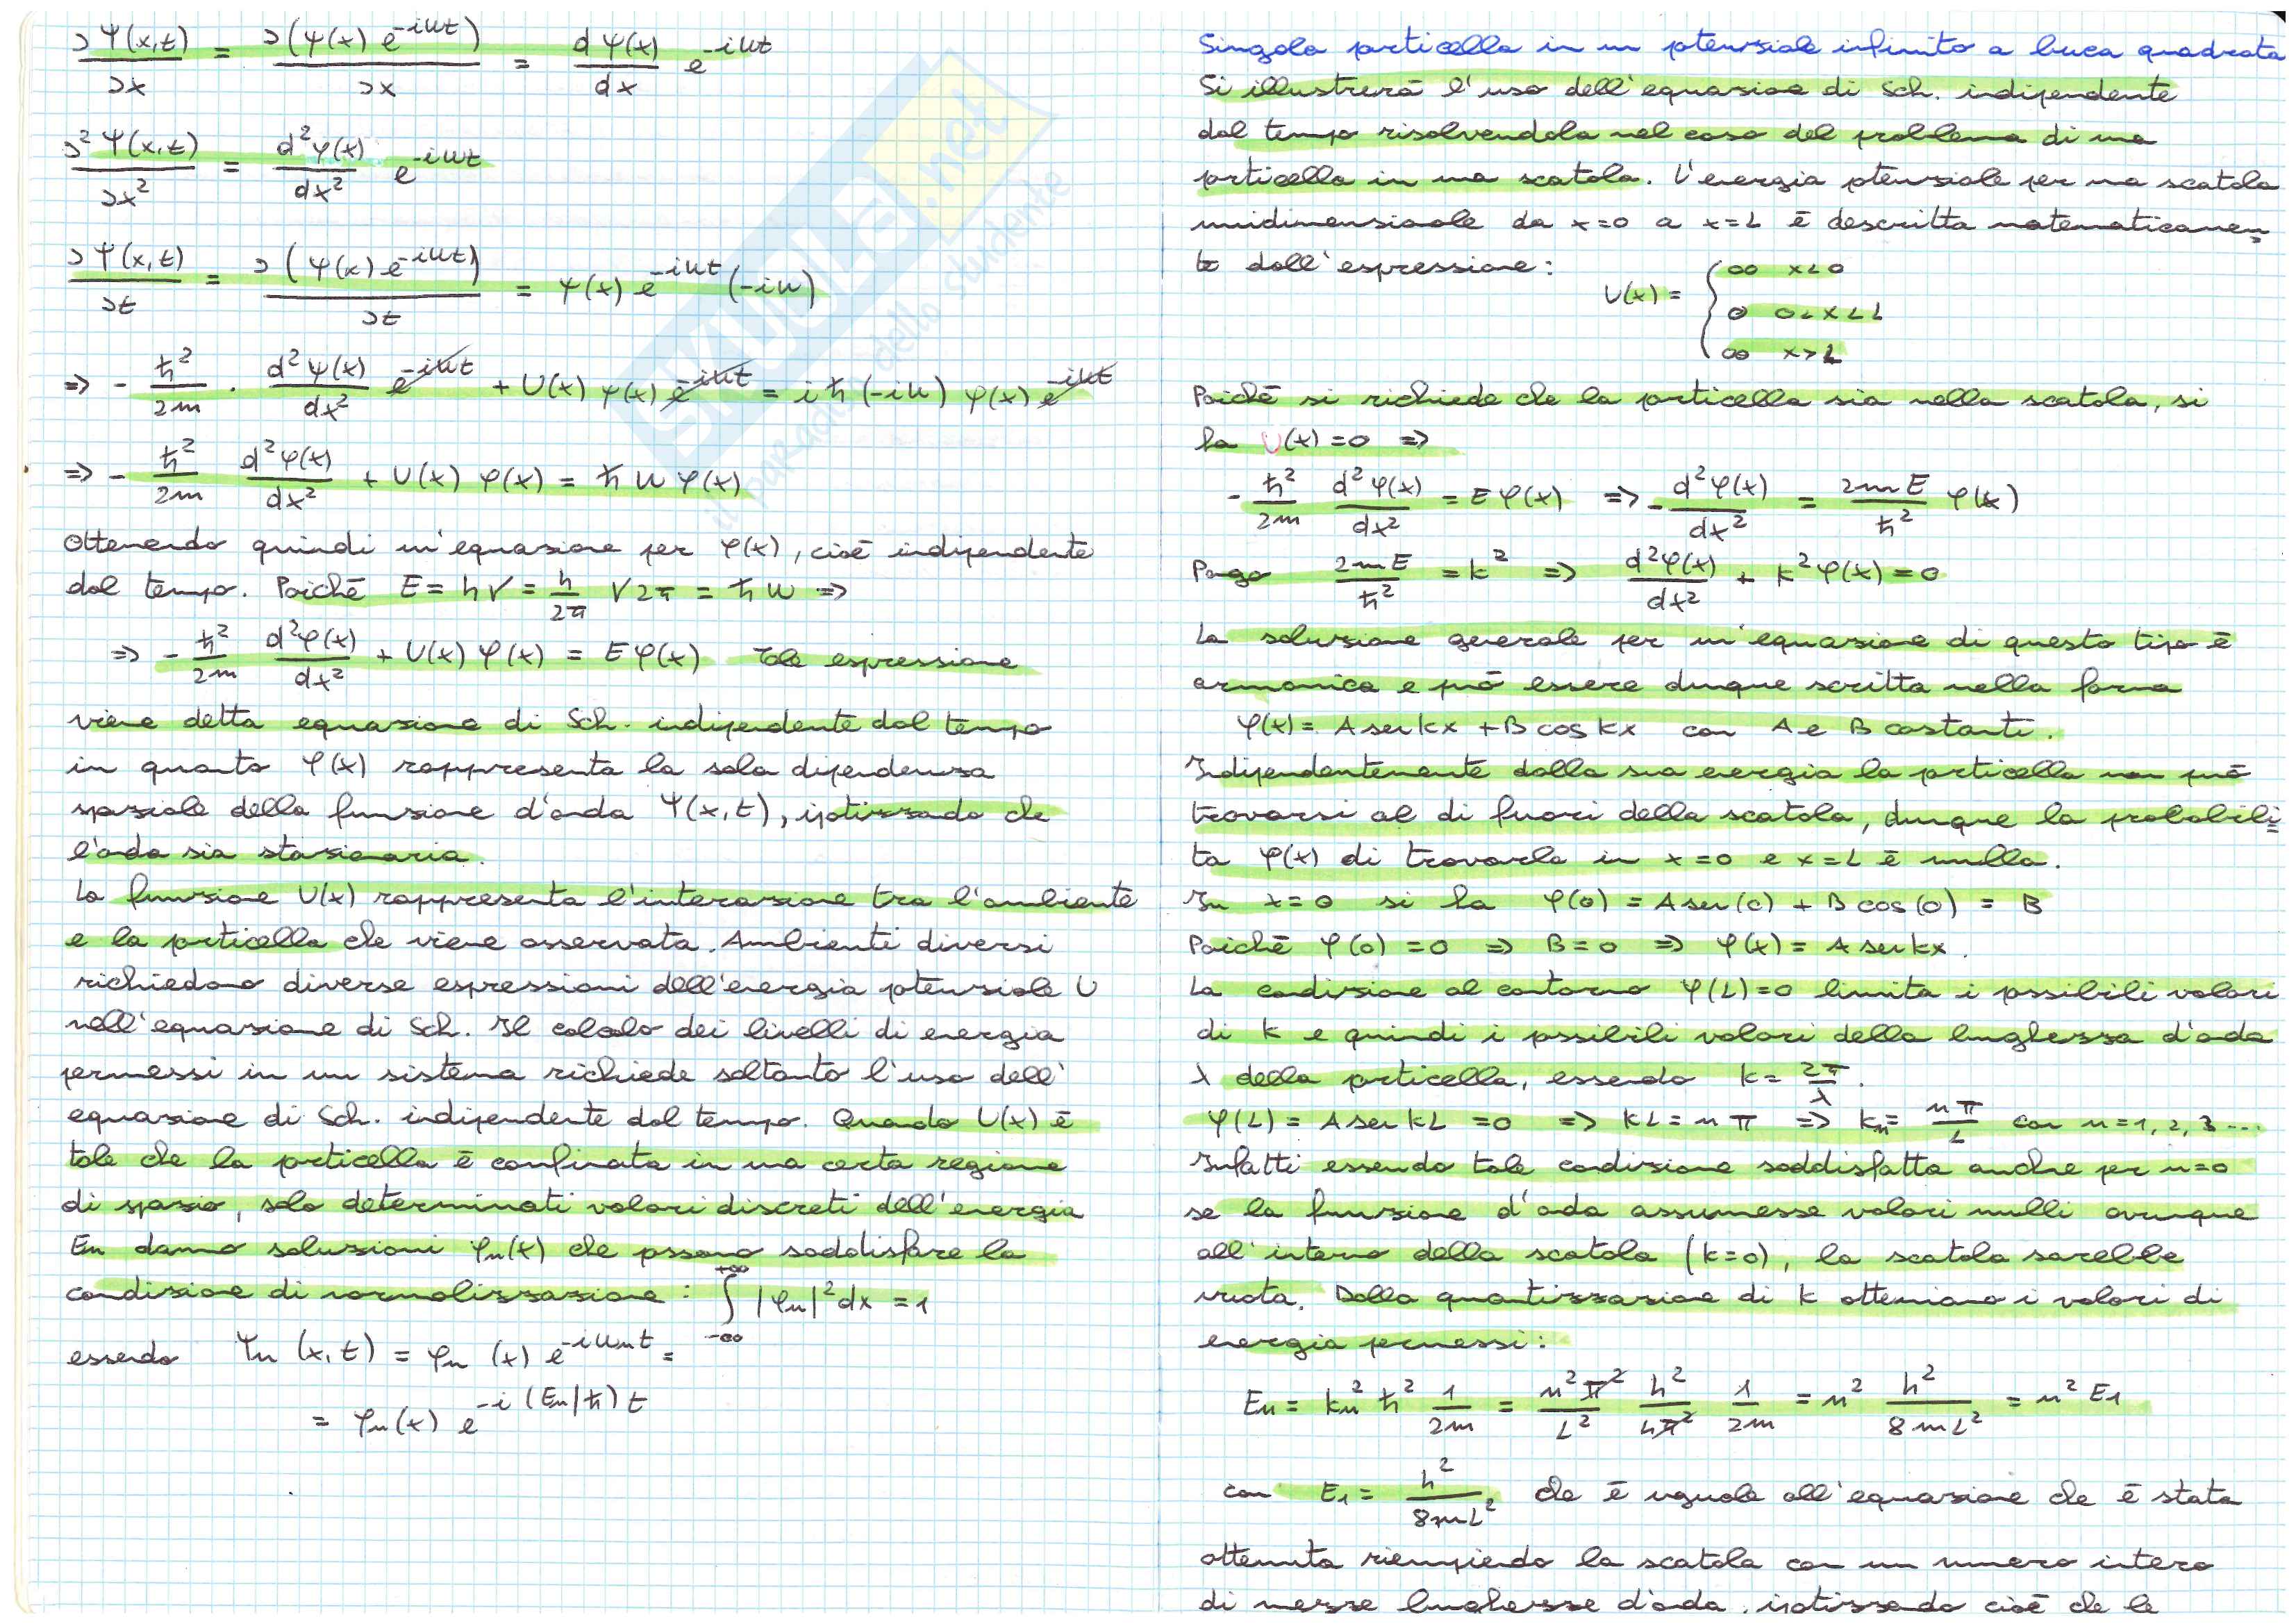 ∂Ψ(x,t)/∂x = ∂(ψ(x) e^-iωt)/∂x = dψ(x)/dx e^-iωt
∂²Ψ(x,t)/∂x² = d²ψ(x)/dx² e^-iωt
∂Ψ(x,t)/∂t = ∂(ψ(x) e^-iωt)/∂t = ψ(x) e^-iωt (-iω)
=> - ħ²/2m · d²ψ(x)/dx² e^-iωt + U(x) ψ(x) e^-iωt = iħ (-iω) ψ(x) e^-iωt
=> - ħ²/2m d²ψ(x)/dx² + U(x) ψ(x) = ħ ω ψ(x)
Ottenendo quindi un'equazione per ψ(x), cioè indipendente
dal tempo. Poiché E = hν = h/2π ν2π = ħω =>
=> - ħ²/2m d²ψ(x)/dx² + U(x) ψ(x) = Eψ(x) Tale espressione
viene detta equazione di Sch. indipendente dal tempo
in quanto ψ(x) rappresenta la sola dipendenza
spaziale della funzione d'onda Ψ(x,t), ipotizzando che
l'onda sia stazionaria.
La funzione U(x) rappresenta l'interazione tra l'ambiente
e la particella che viene osservata. Ambienti diversi
richiedono diverse espressioni dell'energia potenziale U
nell'equazione di Sch. Il calcolo dei livelli di energia
permessi in un sistema richiede soltanto l'uso dell'
equazione di Sch. indipendente dal tempo. Quando U(x) è
tale che la particella è confinata in una certa regione
di spazio, solo determinati valori discreti dell'energia
En danno soluzioni ψn(x) che possono soddisfare la
condizione di normalizzazione: ∫_-∞^+∞ |ψn|² dx = 1
essendo Ψn (x,t) = ψn (x) e^-iωnt =
= ψn(x) e^-i(En/ħ)t
Singola particella in un potenziale infinito a buca quadrata
Si illustrerà l'uso dell'equazione di Sch. indipendente
dal tempo risolvendola nel caso del problema di una
particella in una scatola. L'energia potenziale per una scatola
unidimensionale da x=0 a x=L è descritta matematicamen=
te dall'espressione:
U(x) = { ∞ x<0
0 0<x<L
∞ x>L
Poiché si richiede che la particella sia nella scatola, si
ha U(x)=0 =>
- ħ²/2m d²ψ(x)/dx² = Eψ(x) => - d²ψ(x)/dx² = 2mE/ħ² ψ(x)
Pongo 2mE/ħ² = k² => d²ψ(x)/dx² + k²ψ(x)=0
La soluzione generale per un'equazione di questo tipo è
armonica e può essere dunque scritta nella forma
ψ(x)= A sen kx + B cos kx con A e B costanti.
Indipendentemente dalla sua energia la particella non può
trovarsi al di fuori della scatola, dunque la probabili=
tà ψ(x) di trovarla in x=0 e x=L è nulla.
In x=0 si ha ψ(0) = A sen(0) + B cos(0) = B
Poiché ψ(0)=0 => B=0 => ψ(x)= A sen kx.
La condizione al contorno ψ(L)=0 limita i possibili valori
di k e quindi i possibili valori della lunghezza d'onda
λ della particella, essendo k= 2π/λ.
ψ(L)= A sen kL =0 => kL= nπ => kn= nπ/L con n=1, 2, 3...
Infatti essendo tale condizione soddisfatta anche per n=0
se la funzione d'onda assumesse valori nulli ovunque
all'interno della scatola (k=0), la scatola sarebbe
vuota. Dalla quantizzazione di k otteniamo i valori di
energia permessi:
En = kn² ħ² 1/2m = n²π²/L² h²/4π² 1/2m = n² h²/8mL² = n² E1
con E1 = h²/8mL², che è uguale all'equazione che è stata
ottenuta riempiendo la scatola con un numero intero
di mezze lunghezze d'onda, ipotizzando cioè che le
SKUOLA.net
il paradiso dello studente